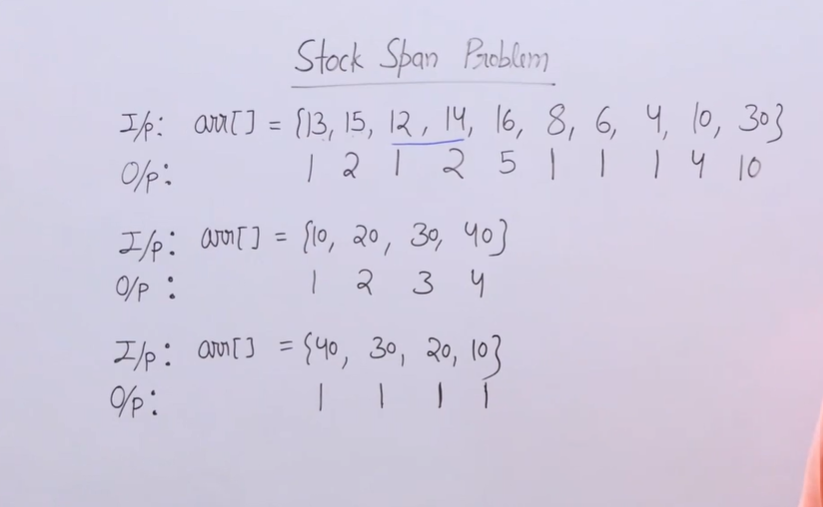 Stock Span Problem
I/p: arr[] = {13, 15, 12, 14, 16, 8, 6, 4, 10, 30}
O/p: 1 2 1 2 5 1 1 1 4 10
I/p: arr[] = {10, 20, 30, 40}
O/p: 1 2 3 4
I/p: arr[] = {40, 30, 20, 10}
O/p: 1 1 1 1